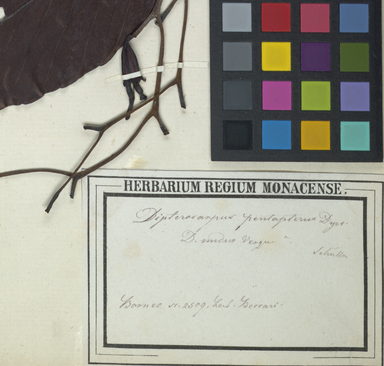 HERBARIUM REGIUM MONACENSE.
Dipterocarpus pentapterus Dyer
D. nudus Vesque
Borneo n. 2509. Leg. Beccari.